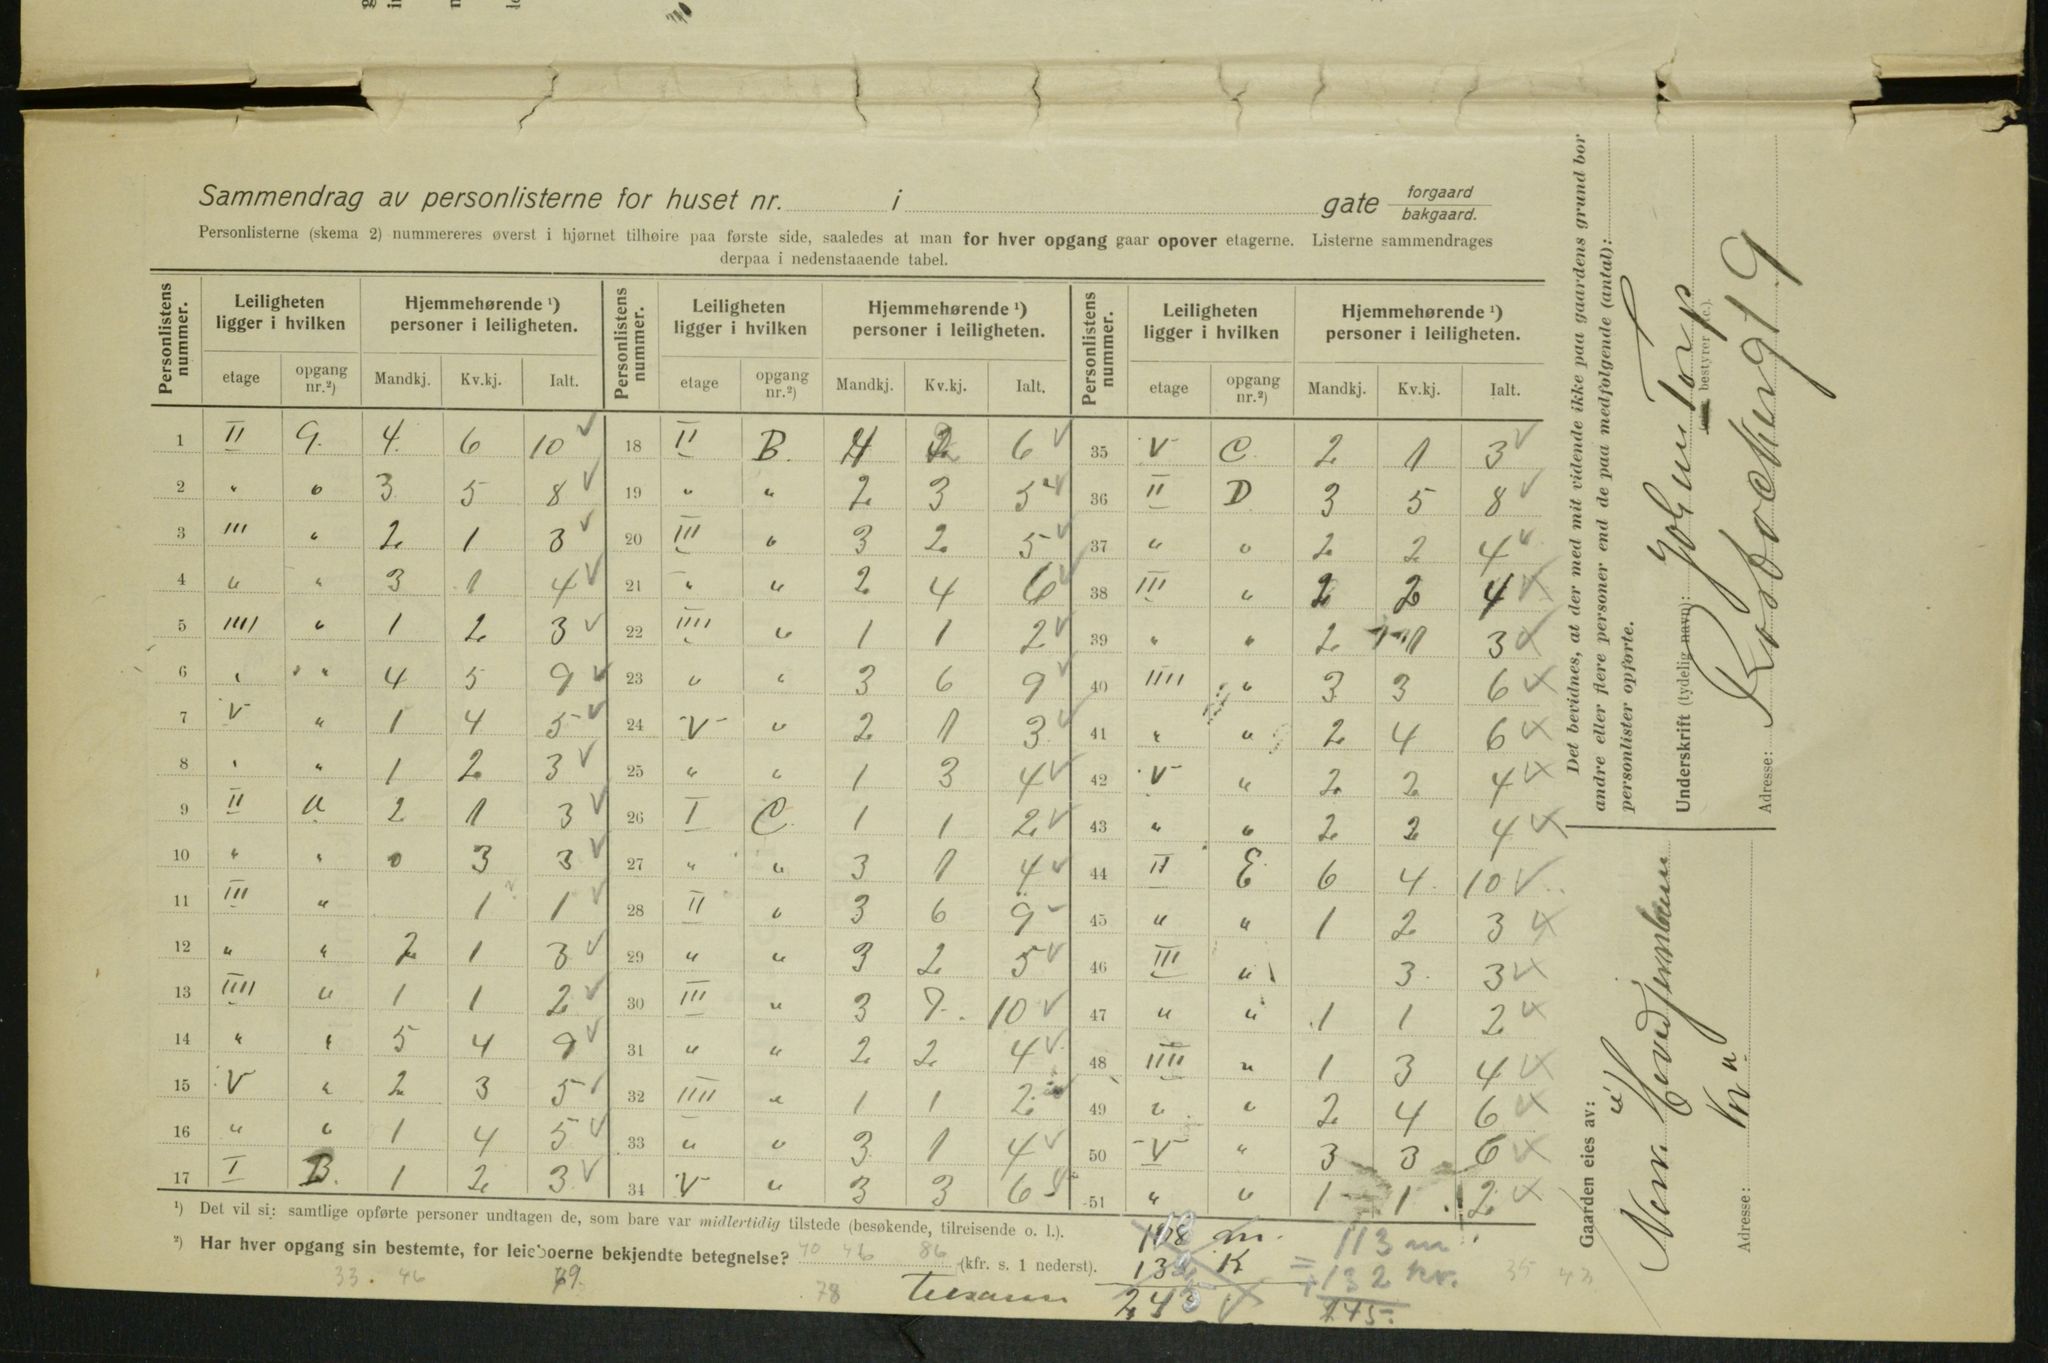 Sammendrag av personlisterne for huset nr. i gate forgaard bakgaard.
Personlisterne (skema 2) nummereres øverst i hjørnet tilhøire paa første side, saaledes at man for hver opgang gaar opover etagerne. Listerne sammendrages
derpaa i nedenstaaende tabel.
Personlistens nummer. Leiligheten ligger i hvilken Hjemmehørende ¹) personer i leiligheten. Personlistens nummer. Leiligheten ligger i hvilken Hjemmehørende ¹) personer i leiligheten. Personlistens nummer. Leiligheten ligger i hvilken Hjemmehørende ¹) personer i leiligheten.
etage opgang nr.²) Mandkj. Kv.kj. Ialt. etage opgang nr.²) Mandkj. Kv.kj. Ialt. etage opgang nr.²) Mandkj. Kv.kj. Ialt.
1 II 4 6 10 18 II B. 4 2 6 35 V C 2 1 3
2 " " 3 5 8 19 " " 2 3 5 36 II D 3 5 8
3 III " 2 1 3 20 III " 3 2 5 37 " " 2 2 4
4 " " 3 1 4 21 " " 2 4 6 38 III " 2 2 4
5 IIII " 1 2 3 22 IIII " 1 1 2 39 " " 2 1 3
6 " " 4 5 9 23 " " 3 6 9 40 IIII " 3 3 6
7 V " 1 4 5 24 V " 2 1 3 41 " " 2 4 6
8 " " 1 2 3 25 " " 1 3 4 42 V " 2 2 4
9 II 2 1 3 26 I C. 1 1 2 43 " " 2 2 4
10 " " 0 3 3 27 " " 3 1 4 44 II E 6 4 10
11 III " 1 1 28 II " 3 6 9 45 " " 1 2 3
12 " " 2 1 3 29 " " 3 2 5 46 III " 3 3
13 IIII " 1 1 2 30 III " 3 7 10 47 " " 1 1 2
14 " " 5 4 9 31 " " 2 2 4 48 IIII " 1 3 4
15 V " 2 3 5 32 IIII " 1 1 2 49 " " 2 4 6
16 " " 1 4 5 33 " " 3 1 4 50 V " 3 3 6
17 I B. 1 2 3 34 V " 3 3 6 51 " " 1 1 2
¹) Det vil si: samtlige opførte personer undtagen de, som bare var midlertidig tilstede (besøkende, tilreisende o. l.).
²) Har hver opgang sin bestemte, for leieboerne bekjendte betegnelse? 40 46 86 (kfr. s. 1 nederst).
33. 46 79. 78
132 K
113 m
132 kv.
245.
35 43
Det bevidnes, at der med mit vidende ikke paa gaardens grund bor
andre eller flere personer end de paa medfølgende (antal):
personlister opførte.
Underskrift (tydelig navn): Johan Torp
bestyrer
Adresse: 19
Gaarden eies av:
Adresse: Kr a